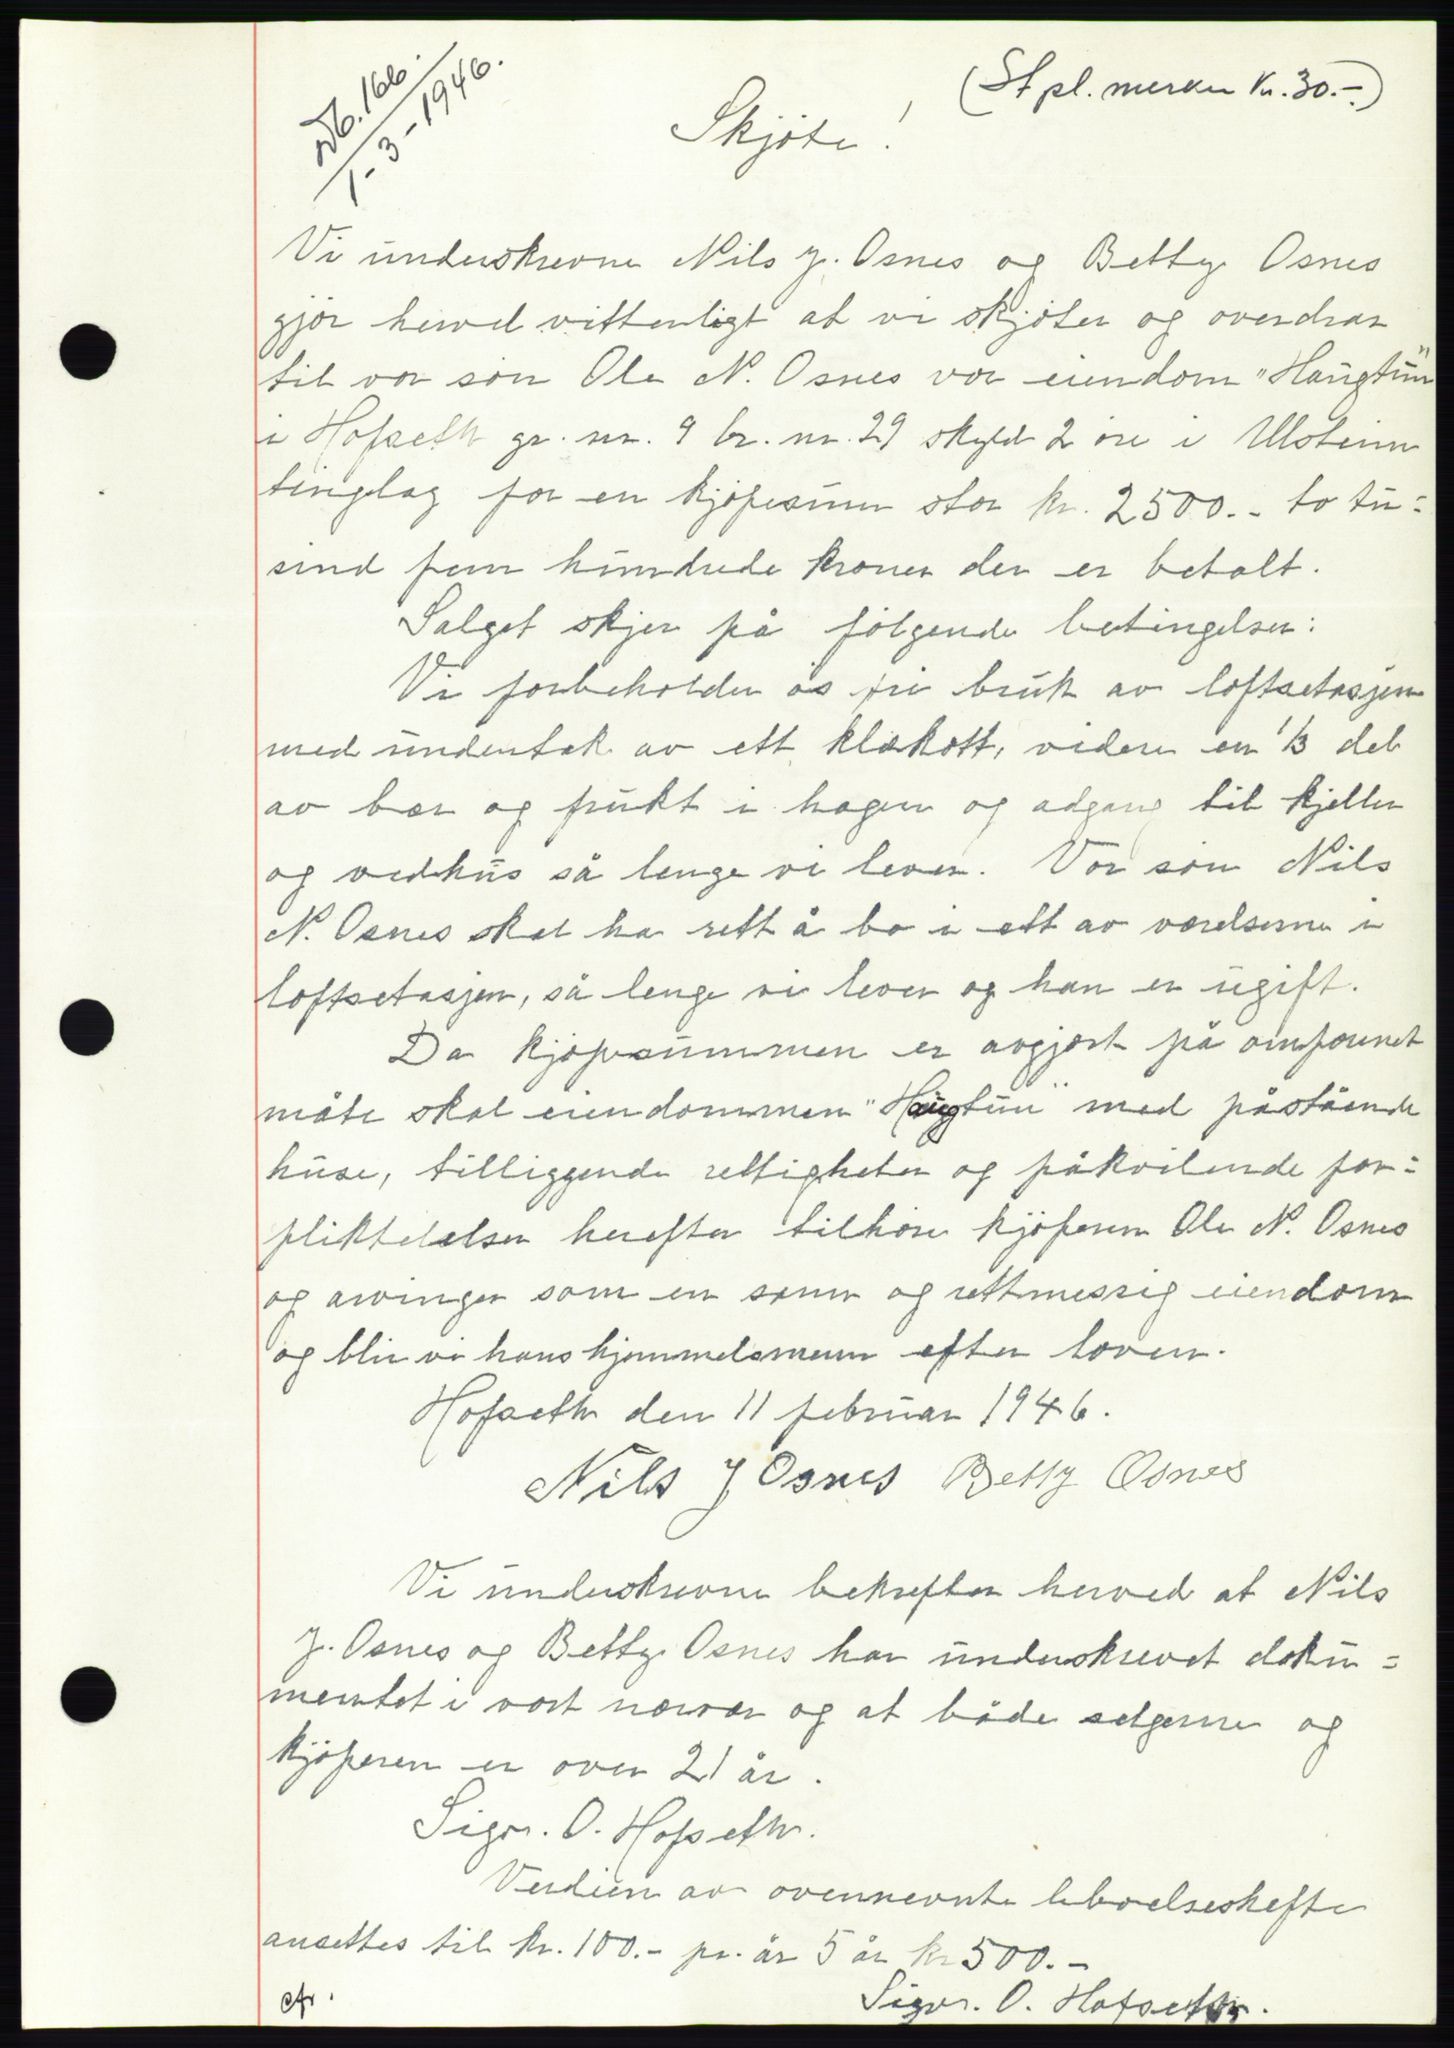 Nb. 166.
1-3-1946.
(Stpl. merker Kr. 30.-)
Skjøte!
Vi underskrevne Nils J. Osnes og Betty Osnes
gjør herved vitterligt at vi skjøter og overdrar
til vor søn Ole N. Osnes vor eiendom "Haugtun"
i Hofseth gr. nr. 9 br. nr. 29 skyld 2 øre i Ulstein
tinglag for en kjøpesum stor kr. 2500.- to tu=
sind fem hundrede kroner der er betalt.
Salget skjer på følgende betingelser:
Vi forbeholder os fri bruk av loftsetasjen
med undertak av ett klækott, videre en 1/3 del
av bær og frukt i hagen og adgang til kjeller
og vedhus så lenge vi lever. Vor søn Nils
N. Osnes skal ha rett å bo i ett av værelserne i
loftsetasjen, så lenge vi lever og han er ugift.
Da kjøpesummen er avgjort på omforenet
måte skal eiendommen "Haugtun" med påstående
huse, tilliggende rettigheter og påkvilende for=
pliktelser herefter tilhøre kjøperen Ole N. Osnes
og arvinger som en sann og rettmessig eiendom
og blir vi hans hjemmelsmenn efter loven.
Hofseth den 11 februar 1946.
Nils J Osnes Betty Osnes
Vi underskrevne bekrefter herved at Nils
J. Osnes og Betty Osnes har underskrevet doku=
mentet i vort nærvær og at både selgerne og
kjøperen er over 21 år.
Sigv. O. Hofseth.
Verdien av ovennevnte leboelseshefte
ansettes til kr. 100.- pr. år 5 år kr 500.-
Sigv. O. Hofseth.